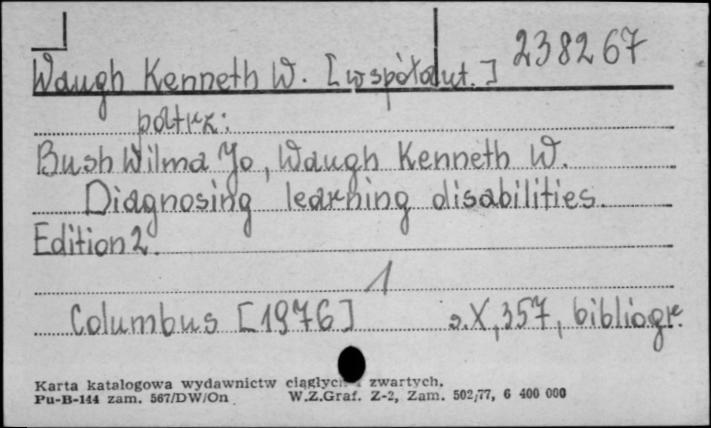 238267
Waugh Kenneth W. [współaut.]
patrz:
Bush Wilma Jo, Waugh Kenneth W.
Diagnosing learning disabilities.
Edition 2.
1
Columbus [1976] s. X, 357, bibliogr.
Karta katalogowa wydawnictw ciągłych i zwartych.
Pu-B-144 zam. 567/DW/On W.Z.Graf. Z-2, Zam. 502/77, 6 400 000